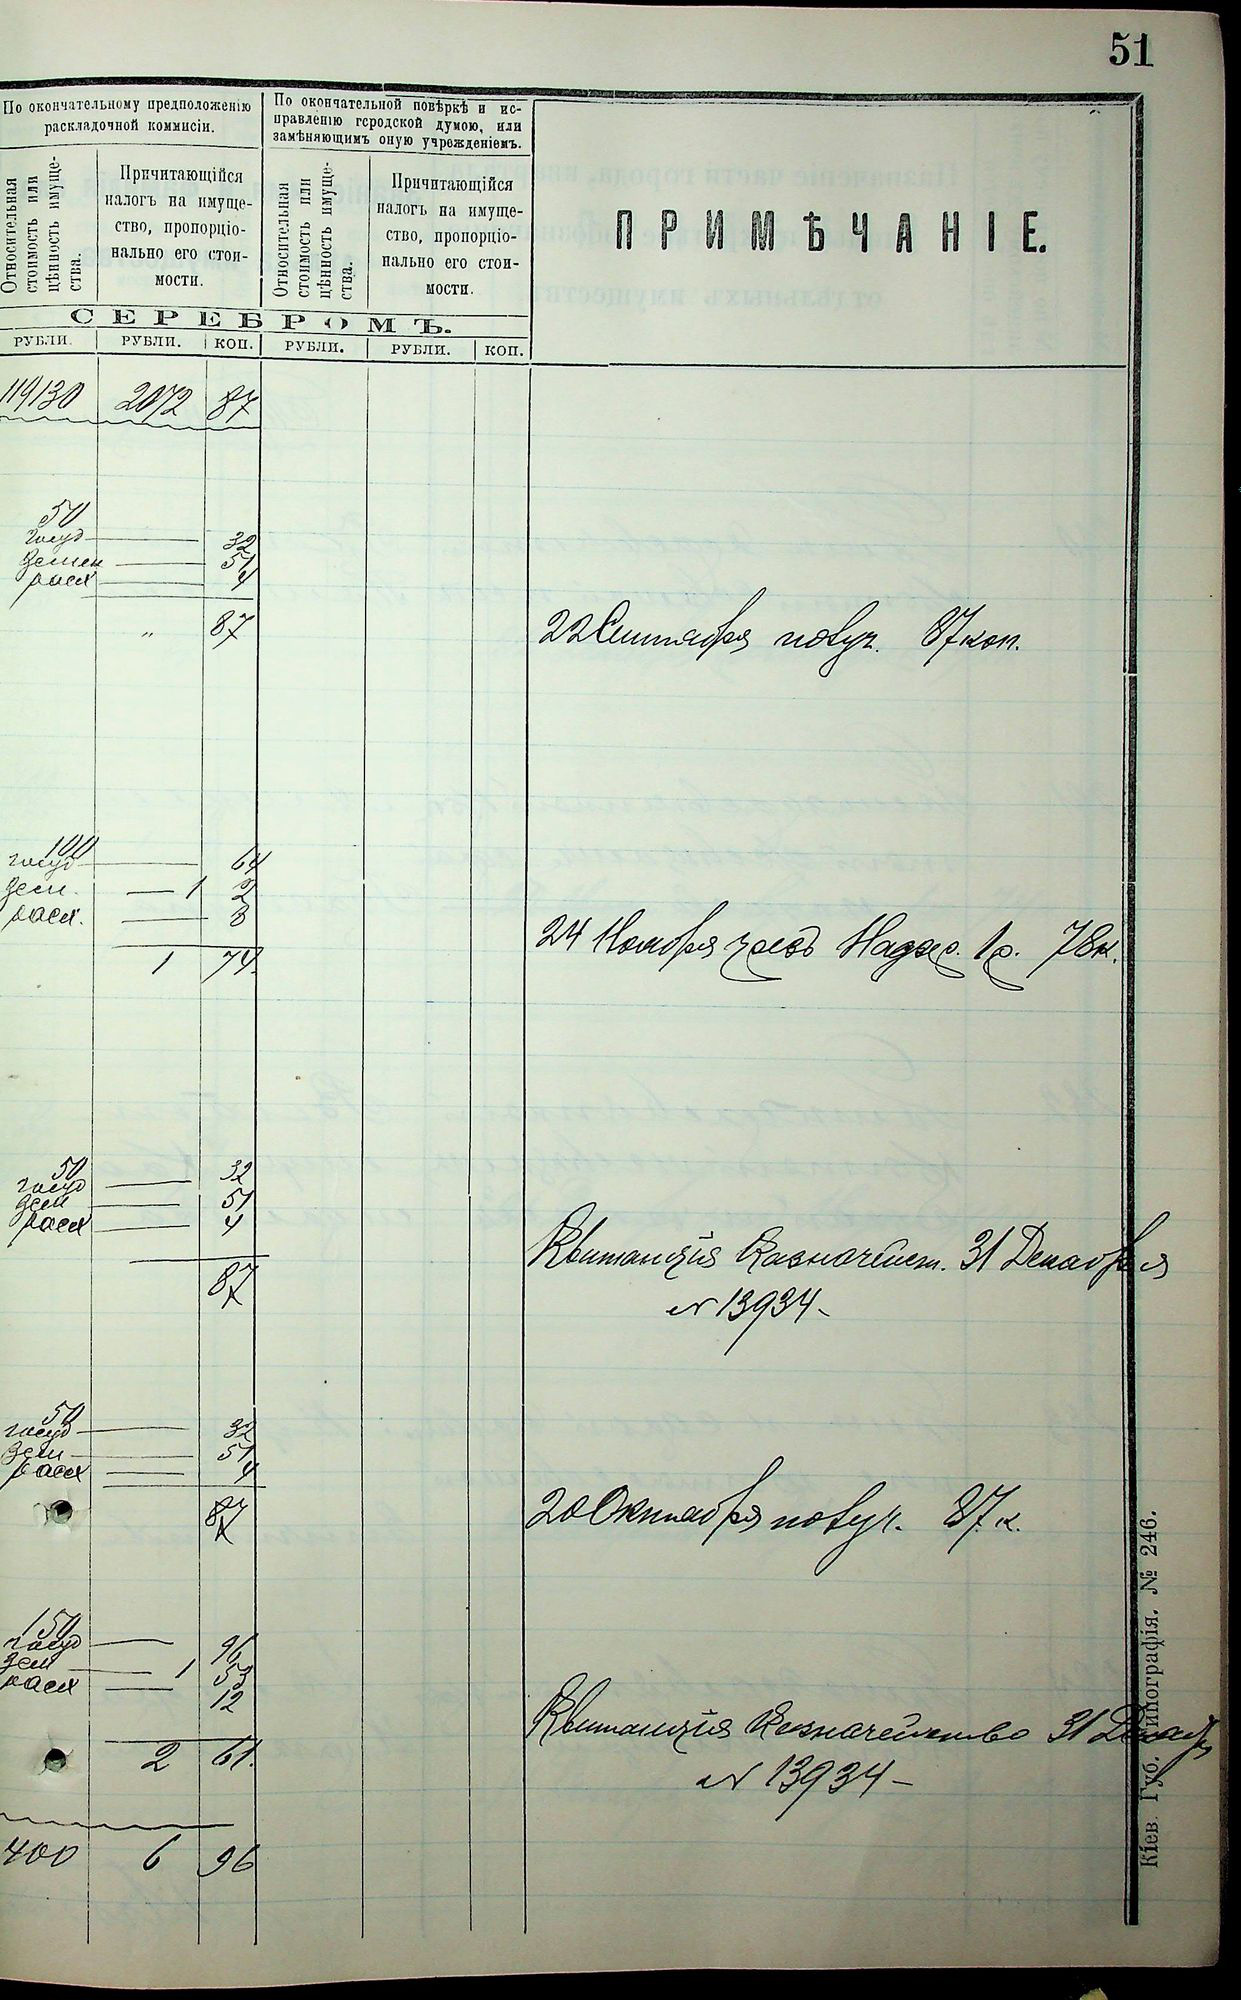 51
По окончательному предположенію
раскладочной коммисіи.
По окончательной повѣркѣ и ис-
правленію городской думою, или
замѣняющимъ оную учрежденіемъ.
Относительная
стоимость или
цѣнность имуще-
ства.
Причитающійся
налогъ на имуще-
ство, пропорціо-
нально его стои-
мости.
Относительная
стоимость или
цѣнность имуще-
ства.
Причитающійся
налогъ на имуще-
ство, пропорціо-
нально его стои-
мости.
ПРИМѢЧАНІЕ.
СЕРЕБРОМЪ.
РУБЛИ. РУБЛИ. КОП. РУБЛИ. РУБЛИ. КОП.
119130 2072 87
50
госуд — 32
земск — 51
расх — 4
" 87
22 Сентября получ. 87 коп.
100
госуд — 64
зем. — 1 2
расх. — 8
1 74
24 Ноября чрезъ Надзер. 1 р. 78 к.
50
госуд — 32
зем — 51
расх — 4
87
Квитанція Казначейст. 31 Декабря
№ 13934 -
50
госуд — 32
зем — 51
расх — 4
87
20 Октября получ. 87 к.
150
госуд — 96
зем — 1 53
расх — 12
2 61.
Квитанція Казначейство 31 Декабр
№ 13934 -
400 6 96
Кіев. Губ. Типографія. № 246.